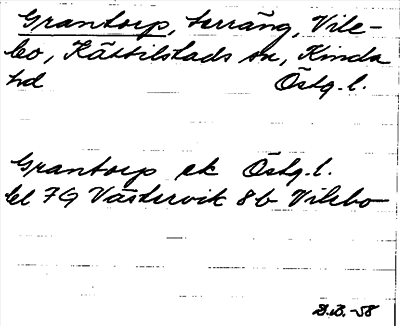 Grantorp, terräng, Vile-
bo, Kättilstads sn, Kinda
hd Östg.l.
Grantorp ek Östg.l.
bl 7G Västervik 8b Vilebo
D.B.-58